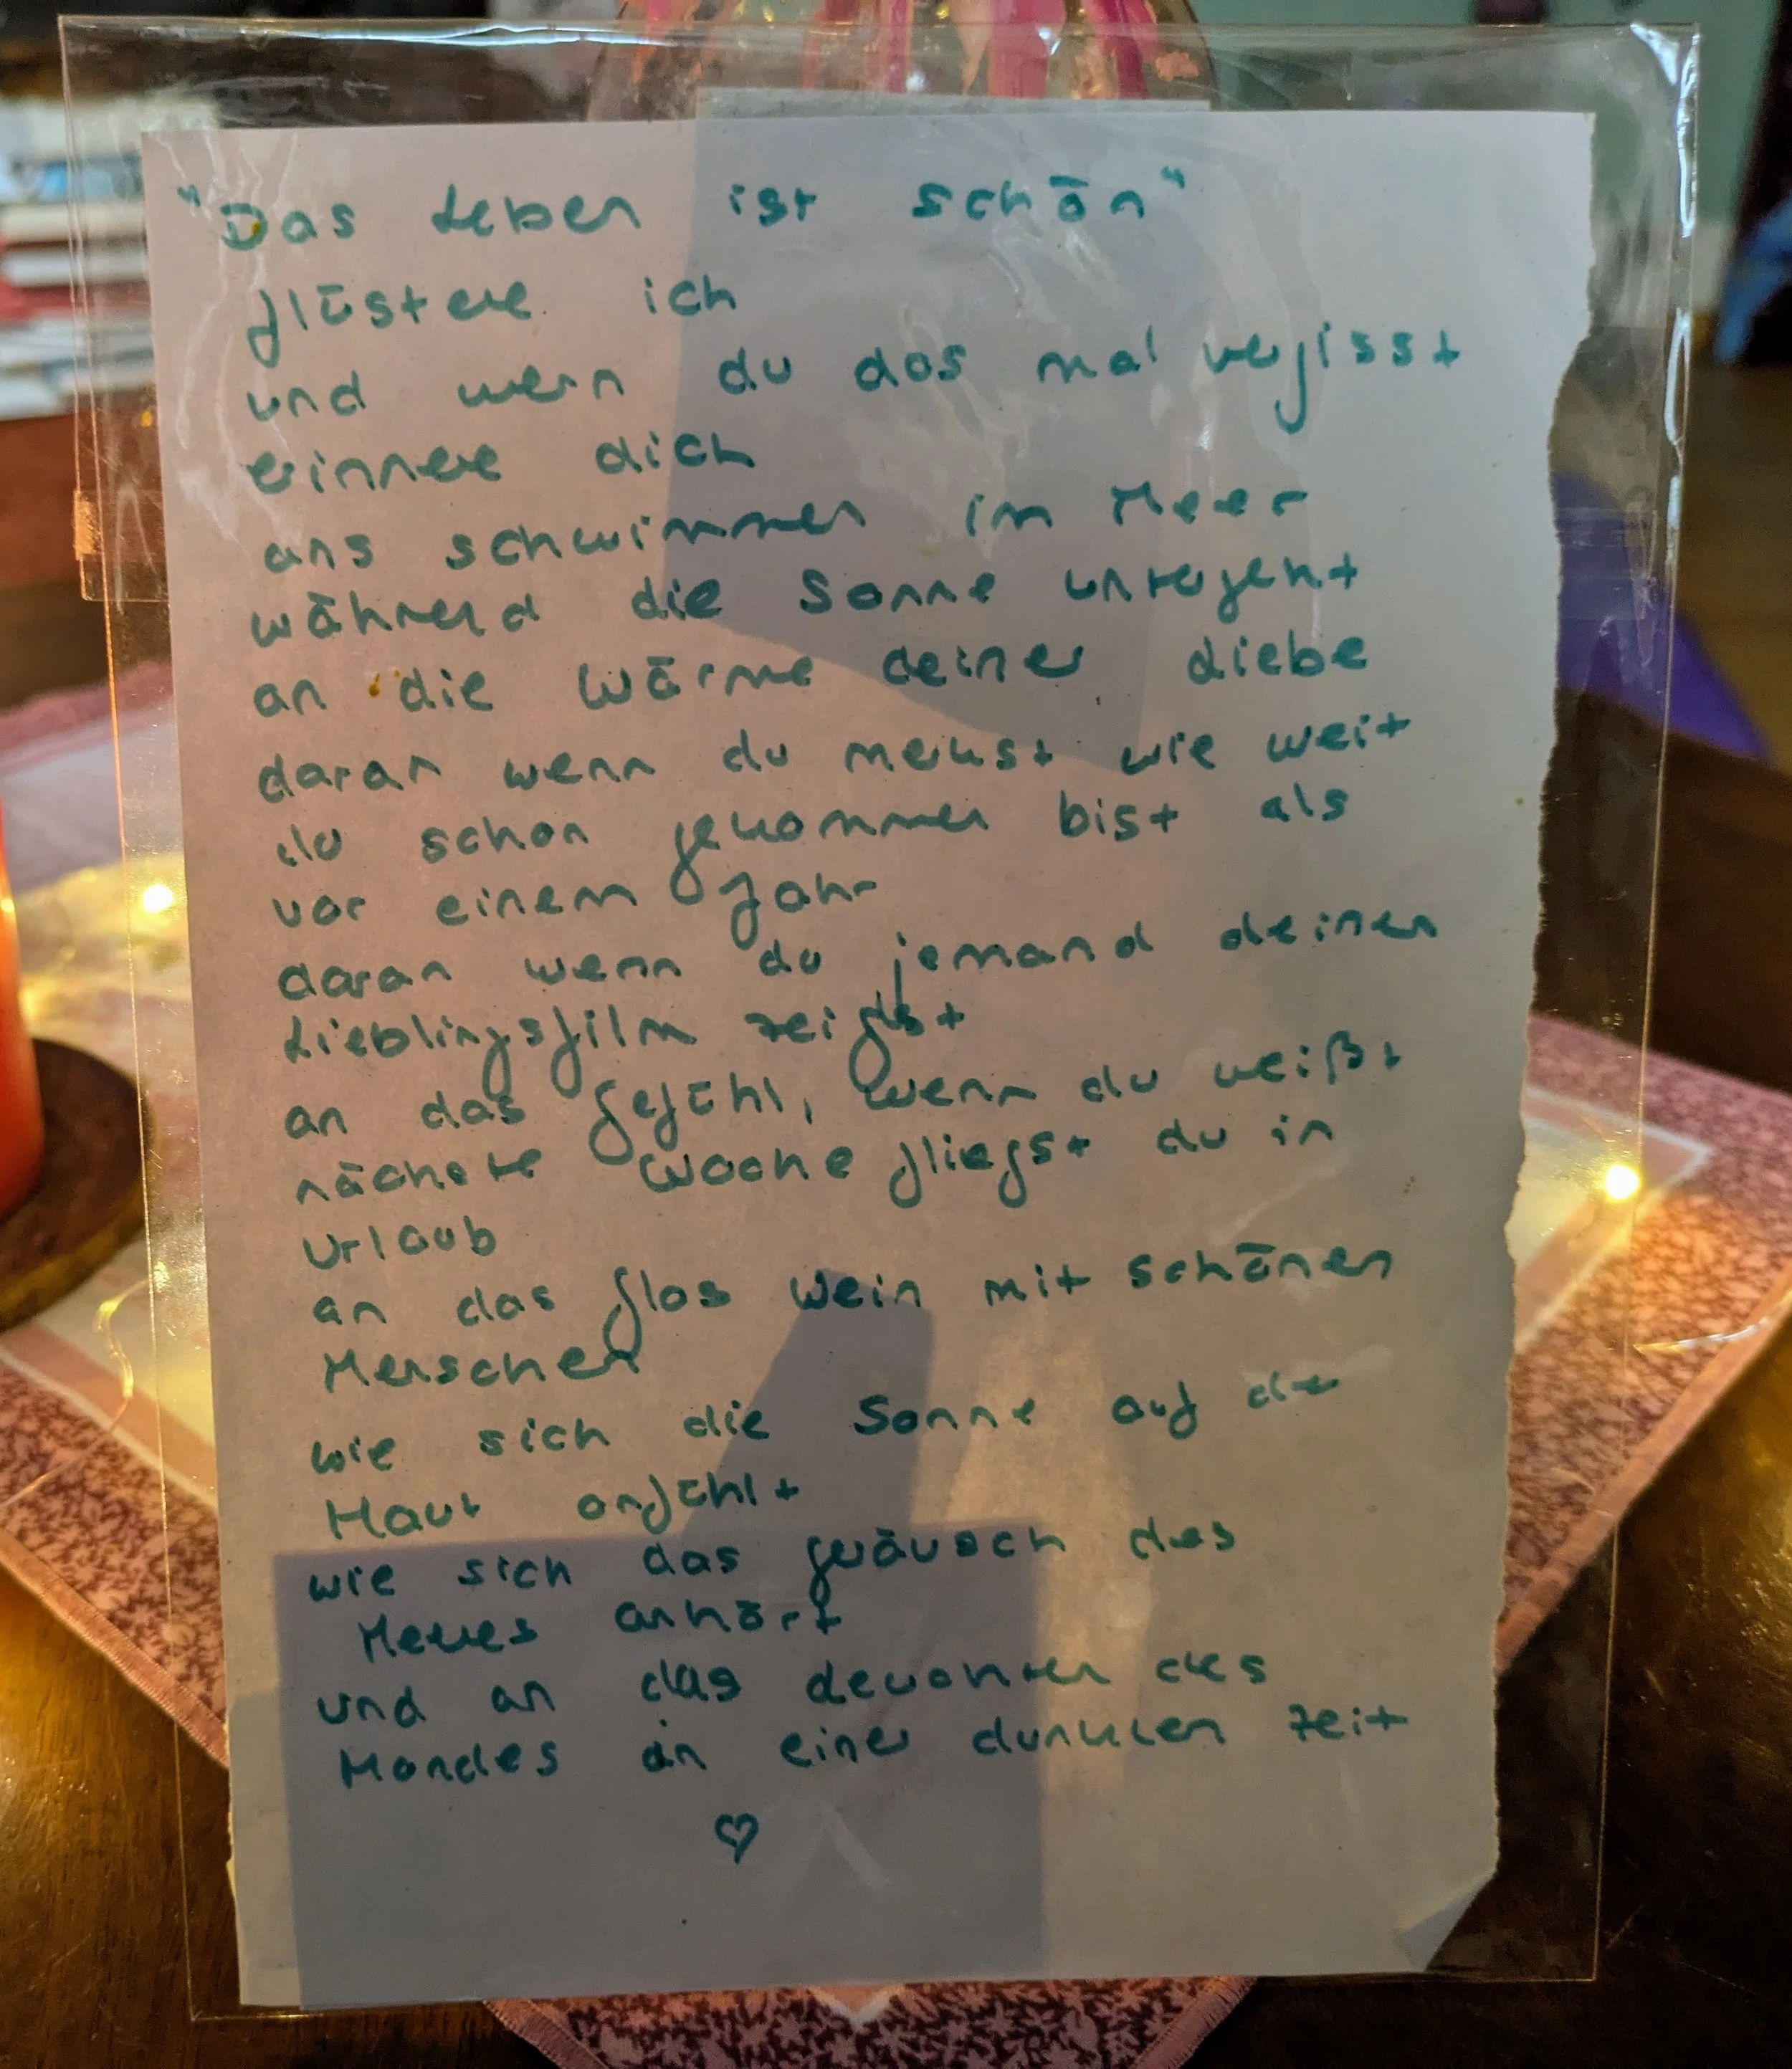 "Das Leben ist schön"
flüstere ich
und wenn du das mal vergisst
erinnere dich
ans schwimmen im Meer
während die Sonne untergeht
an die Wärme deiner Liebe
daran wenn du merkst wie weit
du schon gekommen bist als
vor einem Jahr
daran wenn du jemand deinen
Lieblingsfilm zeigst
an das Gefühl, wenn du weißt
nächste Woche fliegst du in
Urlaub
an das Glas Wein mit schönen
Menschen
wie sich die Sonne auf der
Haut anfühlt
wie sich das Geräusch des
Meeres anhört
und an das des
Mondes in einer dunklen Zeit
♡